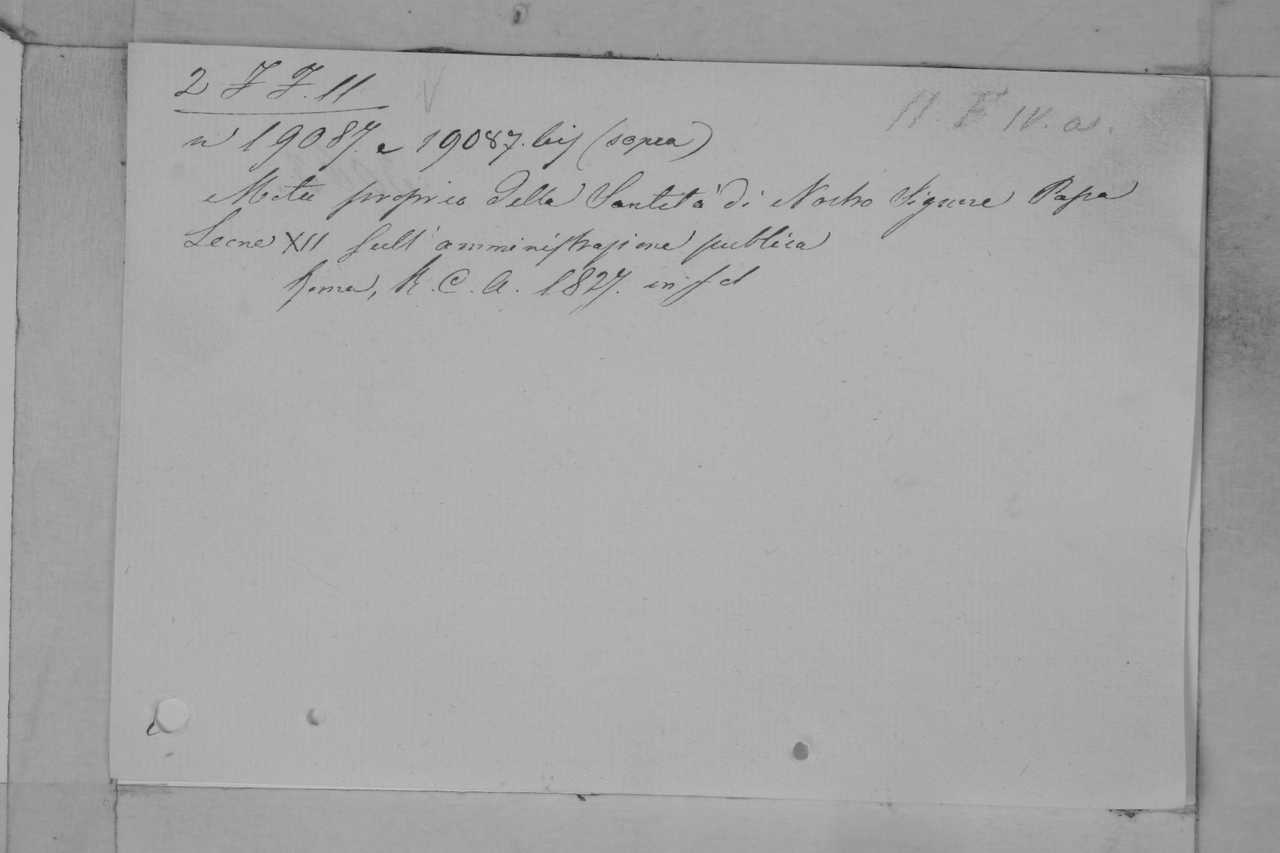 2 F F. 11
II. F IV. a.
n 19087. e 19087. bis (sopra)
Motu proprio della Santità di Nostro Signore Papa
Leone XII sull'amministrazione pubblica
Roma, R. C. A. 1827. in fol